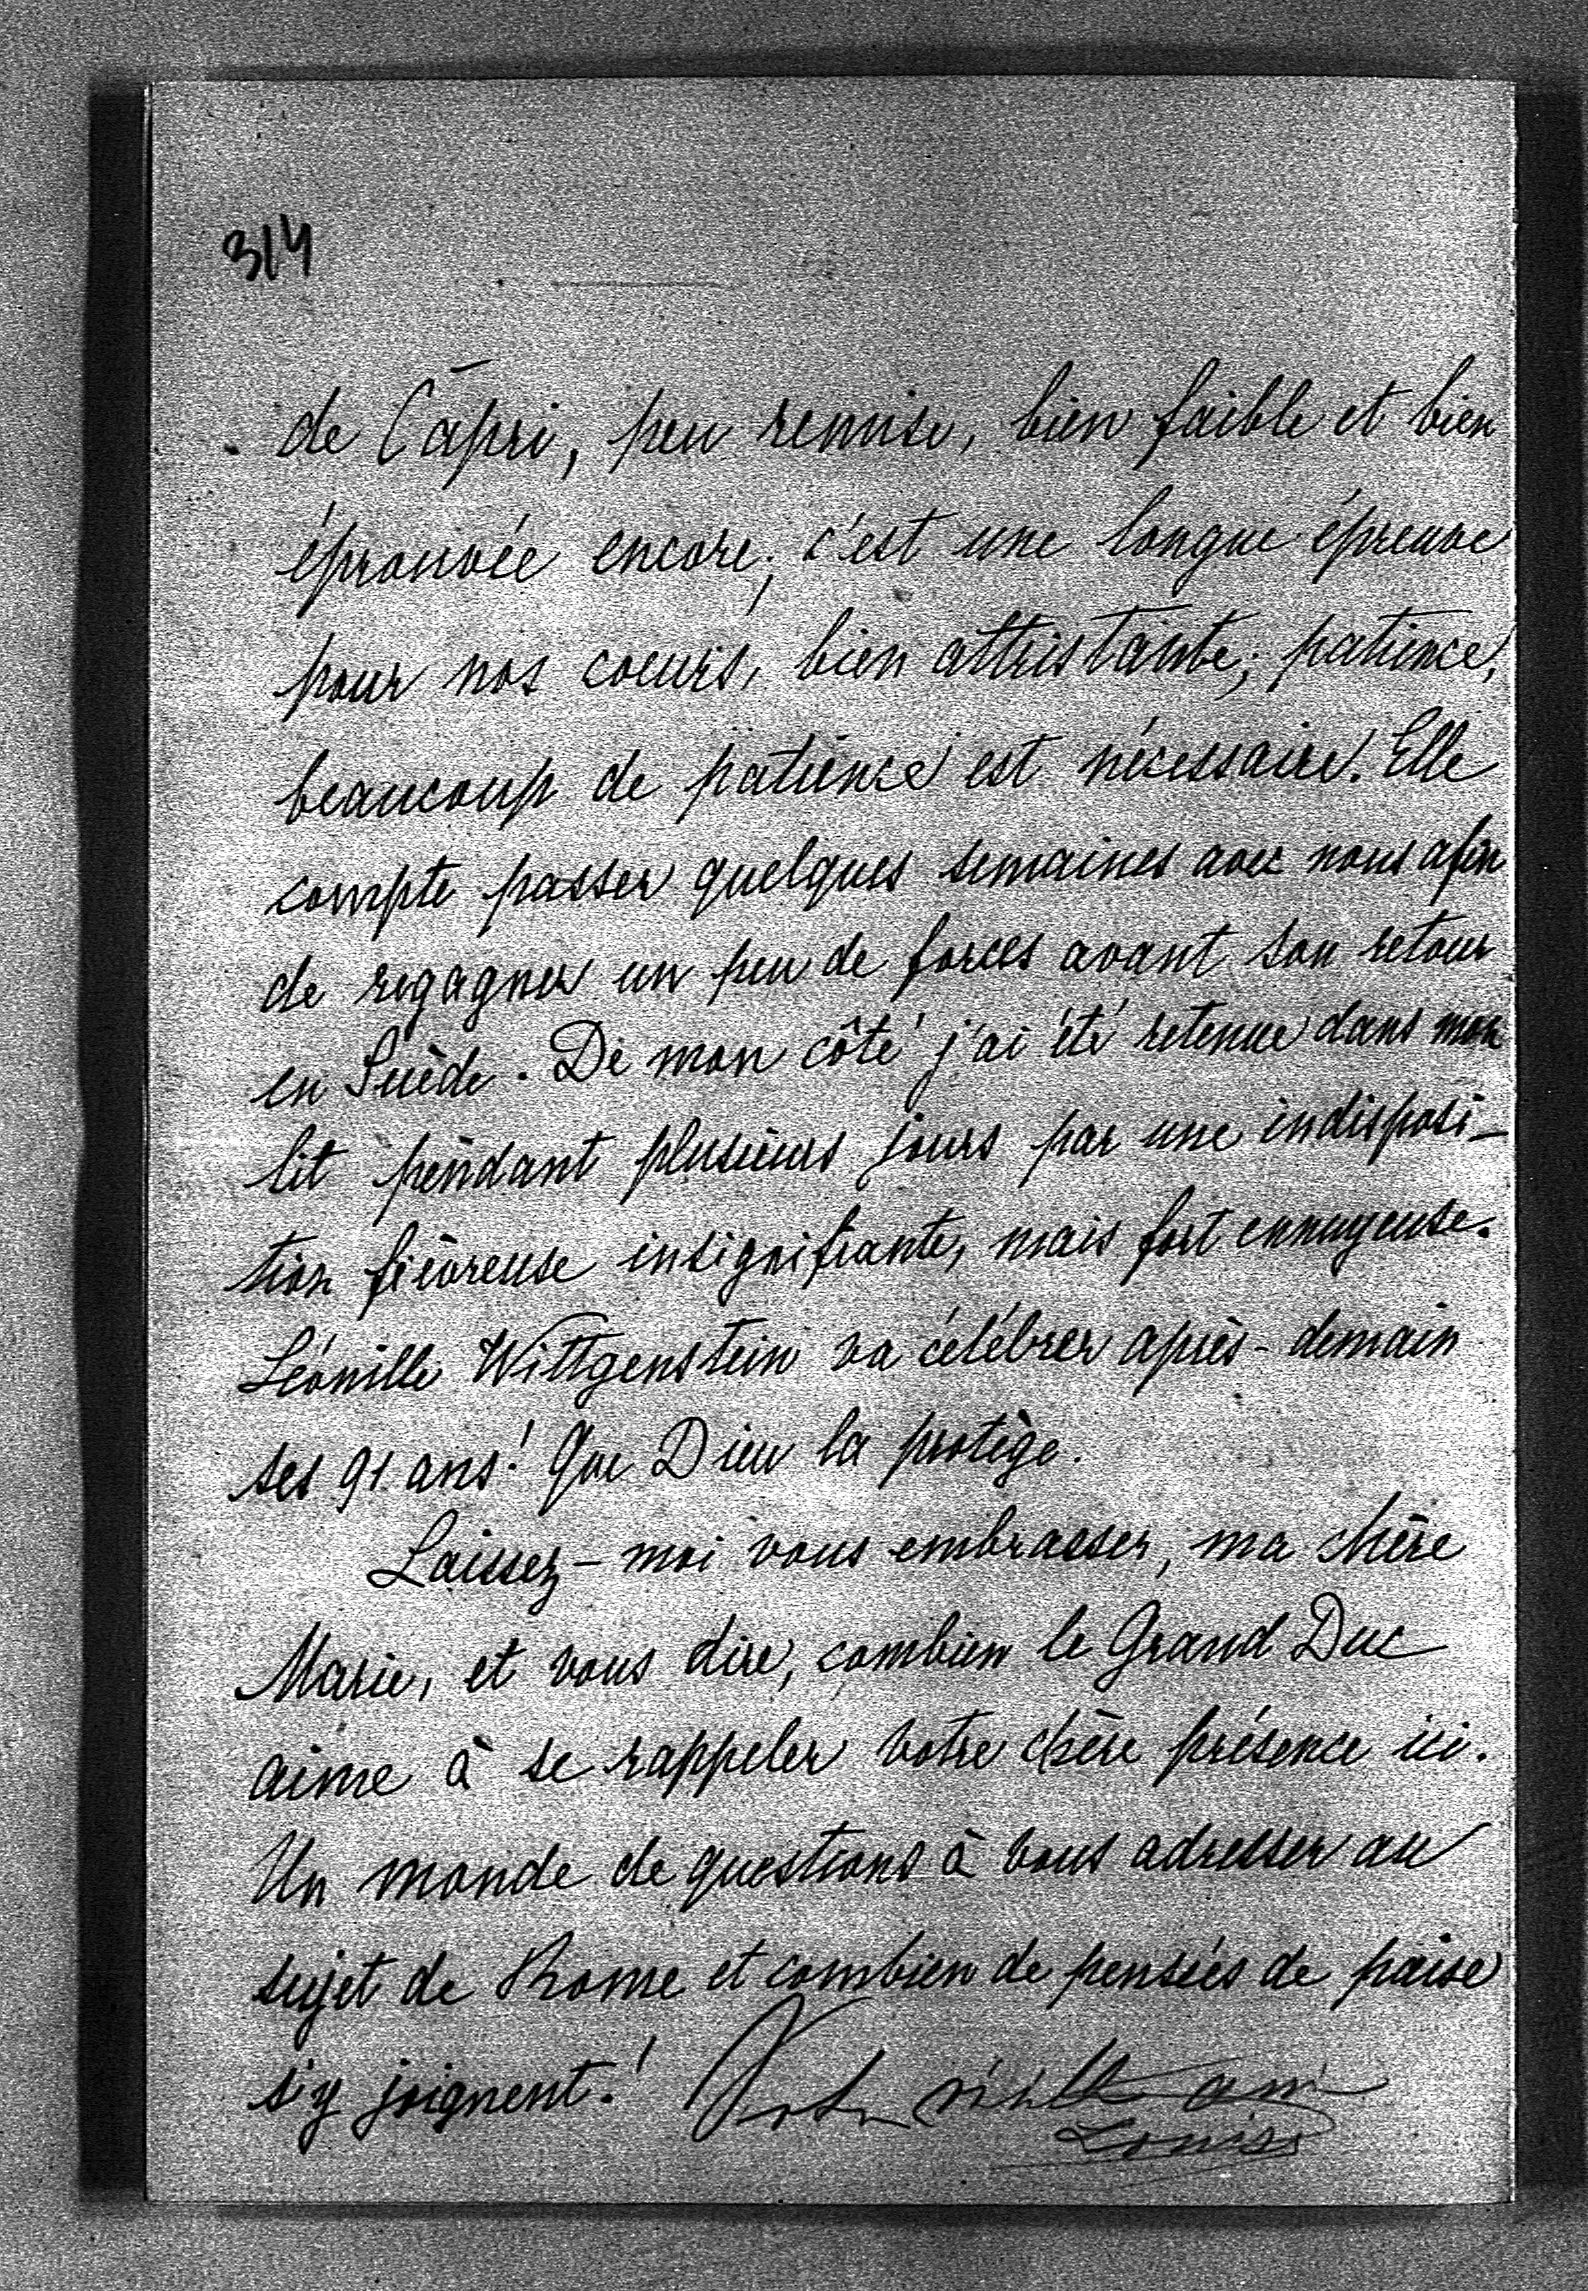 314
de Capri, peu remise, bien faible et bien
éprouvée encore; c'est une longue épreuve
pour nos coeurs, bien attristante; patience,
beaucoup de patience est nécessaire. Elle
compte passer quelques semaines avec nous afin
de regagner un peu de forces avant son retour
en Suède. De mon côté j'ai été retenue dans mon
lit pendant plusieurs jours par une indisposi-
tion fièvreuse insignifiante, mais fort ennuyeuse.
Léonille Wittgenstein va célébrer après-demain
ses 91 ans! Que Dieu la protège.
Laissez-moi vous embrasser, ma chère
Marie, et vous dire, combien le Grand Duc
aime à se rappeler votre chère présence ici.
Un monde de questions à vous adresser au
sujet de Rome et combien de pensées de
s'y joignent! Votre vieille amie
Louise